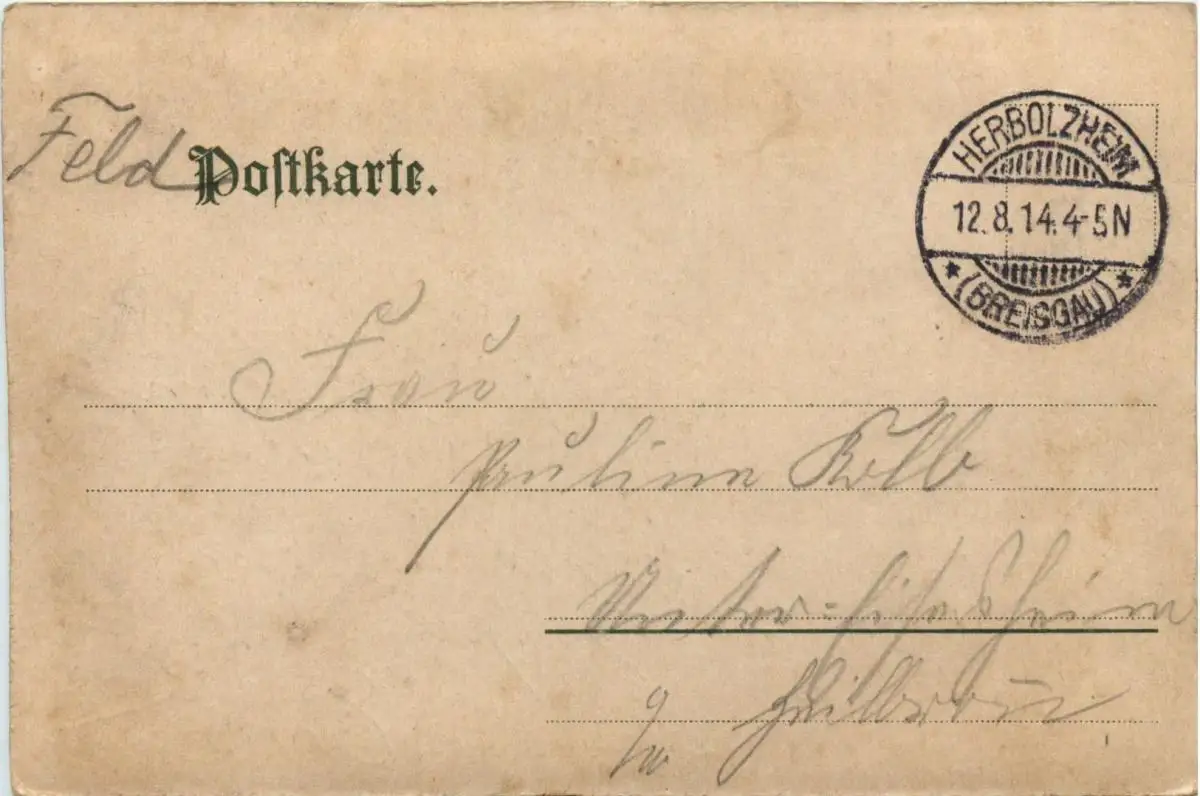 Feld Postkarte.
HERBOLZHEIM
12.8.14.4-5N
* (BREISGAU) *
Frau
Pauline Kolb
Unter-Eisesheim
Heilbronn